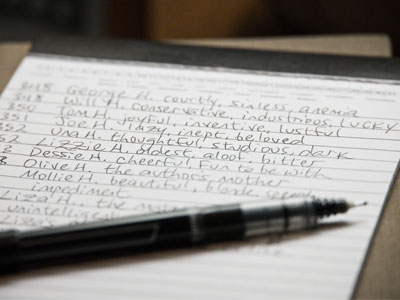 348 George H. courtly, sinless, anemia
348 Will H. conservative, industrious, LUCKY
350 Tom H. joyful, inventive, lustful
351 Joe H. lazy, inept, beloved
352 Una H. thoughtful, studious, dark
2 Lizzie H. oldest, aloof, bitter
2 Dessie H. cheerful, fun to be with
3 Olive H. the authors mother
Mollie H. beautiful, blonde,
impediment
Liza H., the
unintelligent